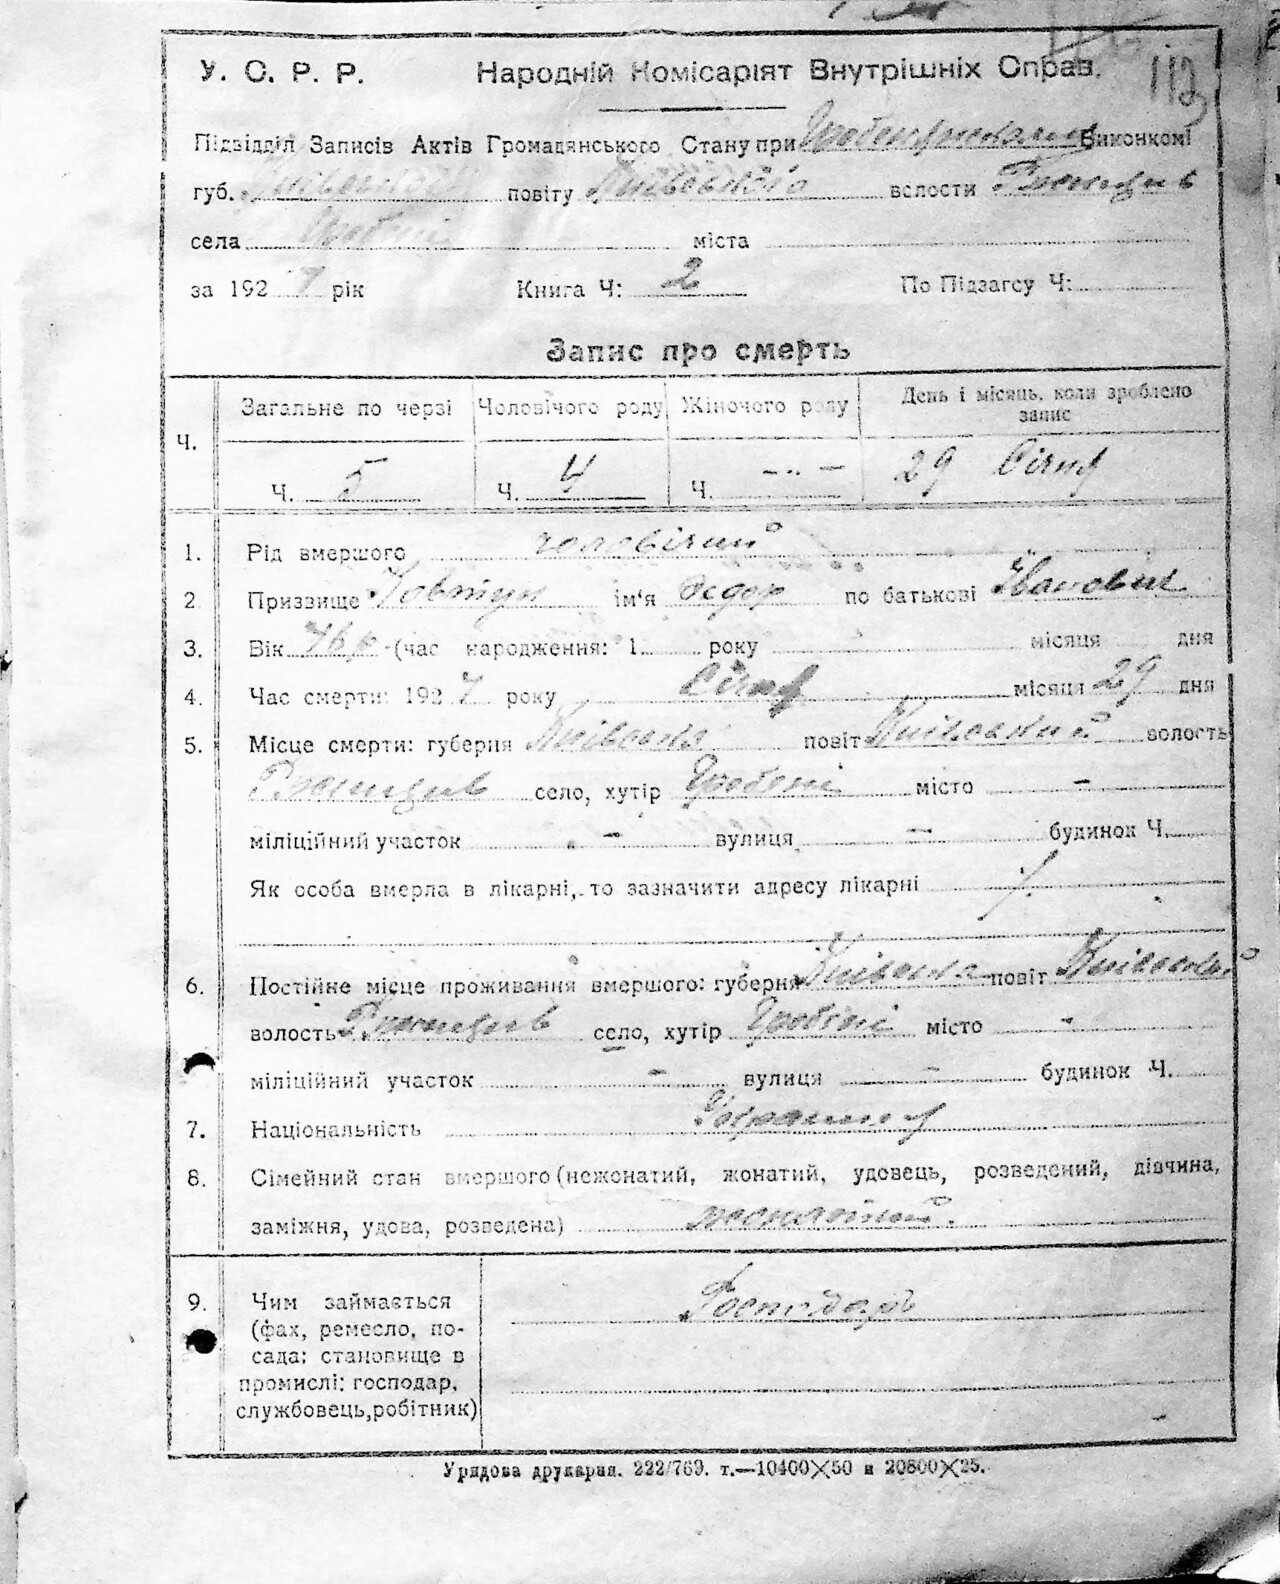 112
У. С. Р. Р. Народній Комісаріят Внутрішніх Справ.
Підвідділ Записів Актів Громадянського Стану при Виконкомі
губ. повіту Київського волости Ржищів
села Гребені міста
за 192 7 рік Книга Ч: 2 По Підзагсу Ч:
Запис про смерть
Ч. Загальне по черзі Чоловічого роду Жіночого роду День і місяць, коли зроблено
запис
Ч. 5 Ч. 4 Ч. – „ – 29 Січня
1. Рід вмершого чоловічий
2 Призвище Ковтун ім'я Федор по батькові Іванович
3. Вік 76 р (час народження: 1 року місяця дня
4. Час смерти: 192 7 року Січня місяця 29 дня
5. Місце смерти: губерня Київська повіт Київський волость
Ржищів село, хутір Гребені місто –
міліційний участок – вулиця – будинок Ч.
Як особа вмерла в лікарні, то зазначити адресу лікарні
6. Постійне місце проживання вмершого: губерня Київська повіт Київський
волость Ржищів село, хутір Гребені місто –
міліційний участок – вулиця – будинок Ч.
7. Національність Українец
8. Сімейний стан вмершого (нежонатий, жонатий, удовець, розведений, дівчина,
заміжня, удова, розведена) жонатий.
9. Чим займається Господарь
(фах, ремесло, по-
сада: становище в
промислі: господар,
службовець, робітник)
Урядова друкарня. 222/769. т.—10400×50 и 20800×25.